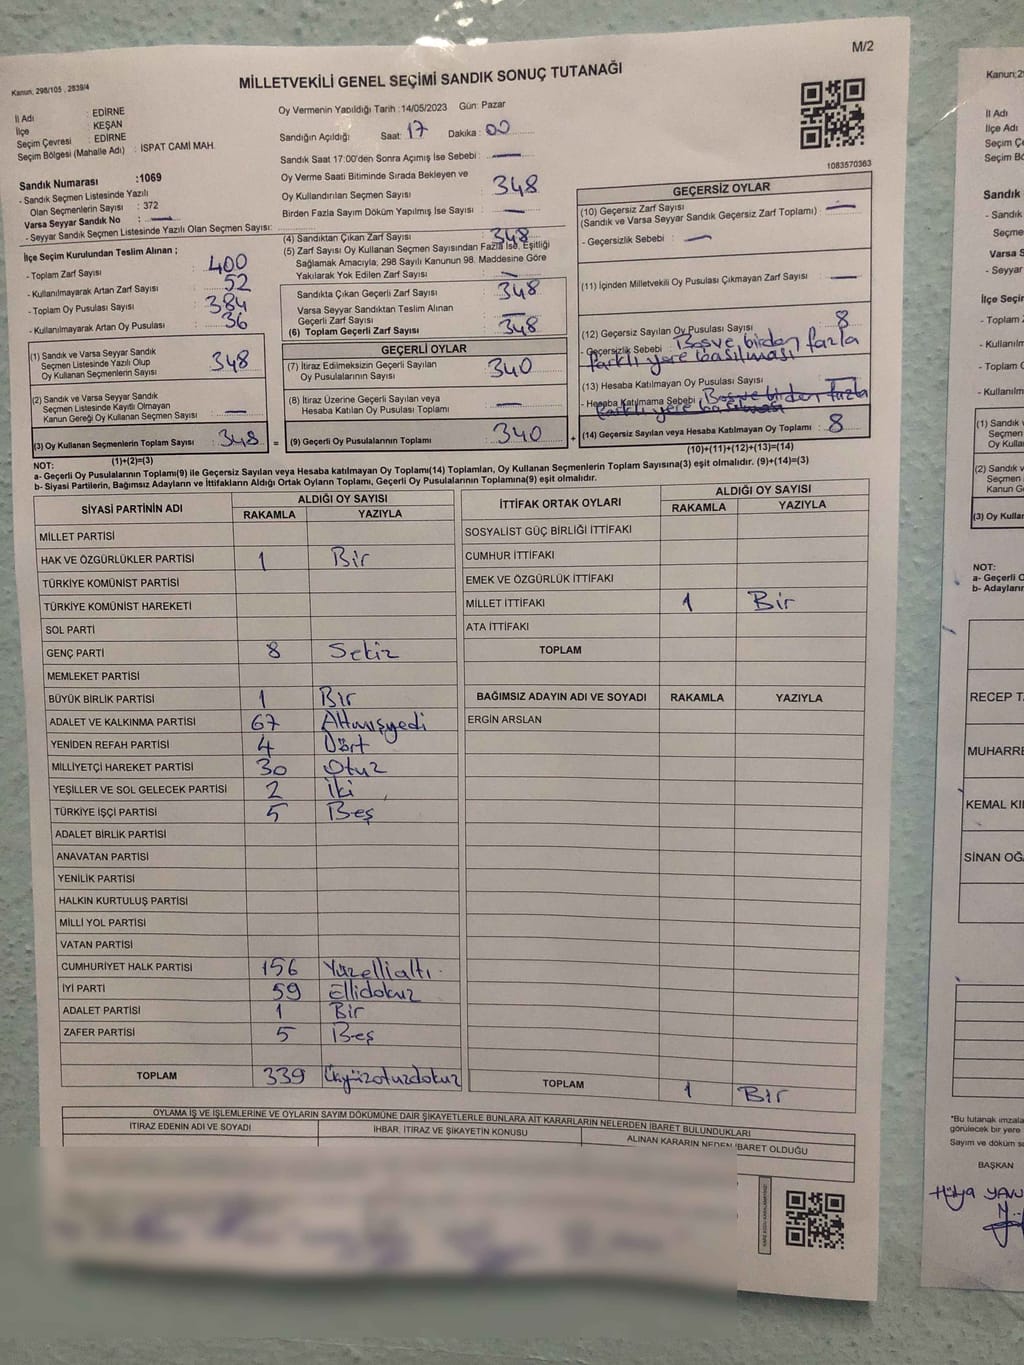 M/2
Kanun, 298/105 , 2839/4
MİLLETVEKİLİ GENEL SEÇİMİ SANDIK SONUÇ TUTANAĞI
İl Adı : EDİRNE
İlçe : KEŞAN
Seçim Çevresi : EDİRNE
Seçim Bölgesi (Mahalle Adı) : İSPAT CAMİ MAH.
Oy Vermenin Yapıldığı Tarih :14/05/2023 Gün: Pazar
Sandığın Açıldığı Saat: 17 Dakika : 00
Sandık Saat 17:00'den Sonra Açımış İse Sebebi : —
Oy Verme Saati Bitiminde Sırada Bekleyen ve
Oy Kullandırılan Seçmen Sayısı : 348
Birden Fazla Sayım Döküm Yapılmış İse Sayısı : —
1083570363
Sandık Numarası :1069
- Sandık Seçmen Listesinde Yazılı
Olan Seçmenlerin Sayısı : 372
Varsa Seyyar Sandık No : —
- Seyyar Sandık Seçmen Listesinde Yazılı Olan Seçmen Sayısı:
İlçe Seçim Kurulundan Teslim Alınan ;
- Toplam Zarf Sayısı : 400
- Kullanılmayarak Artan Zarf Sayısı : 52
- Toplam Oy Pusulası Sayısı : 384
- Kullanılmayarak Artan Oy Pusulası : 36
(1) Sandık ve Varsa Seyyar Sandık
Seçmen Listesinde Yazılı Olup
Oy Kullanan Seçmenlerin Sayısı : 348
(2) Sandık ve Varsa Seyyar Sandık
Seçmen Listesinde Kayıtlı Olmayan
Kanun Gereği Oy Kullanan Seçmen Sayısı : —
(3) Oy Kullanan Seçmenlerin Toplam Sayısı : 348 =
(1)+(2)=(3)
(4) Sandıktan Çıkan Zarf Sayısı : 348
(5) Zarf Sayısı Oy Kullanan Seçmen Sayısından Fazla İse, Eşitliği
Sağlamak Amacıyla; 298 Sayılı Kanunun 98. Maddesine Göre
Yakılarak Yok Edilen Zarf Sayısı : —
Sandıkta Çıkan Geçerli Zarf Sayısı : 348
Varsa Seyyar Sandıktan Teslim Alınan
Geçerli Zarf Sayısı : —
(6) Toplam Geçerli Zarf Sayısı : 348
GEÇERLİ OYLAR
(7) İtiraz Edilmeksizin Geçerli Sayılan
Oy Pusulalarının Sayısı : 340
(8) İtiraz Üzerine Geçerli Sayılan veya
Hesaba Katılan Oy Pusulası Toplamı : —
(9) Geçerli Oy Pusulalarının Toplamı : 340 +
GEÇERSİZ OYLAR
(10) Geçersiz Zarf Sayısı : —
(Sandık ve Varsa Seyyar Sandık Geçersiz Zarf Toplamı)
- Geçersizlik Sebebi : —
(11) İçinden Milletvekili Oy Pusulası Çıkmayan Zarf Sayısı : —
(12) Geçersiz Sayılan Oy Pusulası Sayısı : 8
- Geçersizlik Sebebi : Boş ve birden fazla
farklı yere basılması
(13) Hesaba Katılmayan Oy Pusulası Sayısı : —
- Hesaba Katılmama Sebebi : Boş ve birden fazla
farklı yere basılması
(14) Geçersiz Sayılan veya Hesaba Katılmayan Oy Toplamı : 8
(10)+(11)+(12)+(13)=(14)
NOT:
a- Geçerli Oy Pusulalarının Toplamı(9) ile Geçersiz Sayılan veya Hesaba katılmayan Oy Toplamı(14) Toplamları, Oy Kullanan Seçmenlerin Toplam Sayısına(3) eşit olmalıdır. (9)+(14)=(3)
b- Siyasi Partilerin, Bağımsız Adayların ve İttifakların Aldığı Ortak Oyların Toplamı, Geçerli Oy Pusulalarının Toplamına(9) eşit olmalıdır.
SİYASİ PARTİNİN ADI ALDIĞI OY SAYISI
RAKAMLA YAZIYLA
MİLLET PARTİSİ
HAK VE ÖZGÜRLÜKLER PARTİSİ 1 Bir
TÜRKİYE KOMÜNİST PARTİSİ
TÜRKİYE KOMÜNİST HAREKETİ
SOL PARTİ
GENÇ PARTİ 8 Sekiz
MEMLEKET PARTİSİ
BÜYÜK BİRLİK PARTİSİ 1 Bir
ADALET VE KALKINMA PARTİSİ 67 Altmışyedi
YENİDEN REFAH PARTİSİ 4 Dört
MİLLİYETÇİ HAREKET PARTİSİ 30 Otuz
YEŞİLLER VE SOL GELECEK PARTİSİ 2 İki
TÜRKİYE İŞÇİ PARTİSİ 5 Beş
ADALET BİRLİK PARTİSİ
ANAVATAN PARTİSİ
YENİLİK PARTİSİ
HALKIN KURTULUŞ PARTİSİ
MİLLİ YOL PARTİSİ
VATAN PARTİSİ
CUMHURİYET HALK PARTİSİ 156 Yüzellialtı
İYİ PARTİ 59 Ellidokuz
ADALET PARTİSİ 1 Bir
ZAFER PARTİSİ 5 Beş
TOPLAM 339 Üçyüzotuzdokuz
İTTİFAK ORTAK OYLARI ALDIĞI OY SAYISI
RAKAMLA YAZIYLA
SOSYALİST GÜÇ BİRLİĞİ İTTİFAKI
CUMHUR İTTİFAKI
EMEK VE ÖZGÜRLÜK İTTİFAKI
MİLLET İTTİFAKI 1 Bir
ATA İTTİFAKI
TOPLAM
BAĞIMSIZ ADAYIN ADI VE SOYADI RAKAMLA YAZIYLA
ERGİN ARSLAN
TOPLAM 1 Bir
OYLAMA İŞ VE İŞLEMLERİNE VE OYLARIN SAYIM DÖKÜMÜNE DAİR ŞİKAYETLERLE BUNLARA AİT KARARLARIN NELERDEN İBARET BULUNDUKLARI
İTİRAZ EDENİN ADI VE SOYADI İHBAR, İTİRAZ VE ŞİKAYETİN KONUSU ALINAN KARARIN NEDEN İBARET OLDUĞU
Kanun,
İl Adı
İlçe Adı
Seçim
Seçim
Sandık
- Sandık
Seçme
Varsa
- Seyyar
İlçe Seçi
- Toplam
- Kullanılm
- Toplam
- Kullanılm
(1) Sandık
Seçmen
Oy Kulla
(2) Sandık
Seçmen
Kanun G
(3) Oy Kullan
NOT:
a- Geçerli
b- Adayların
RECEP
MUHARRE
KEMAL
SİNAN
*Bu tutanak imzala
görülecek bir yere
Sayım ve döküm
BAŞKAN
Hülya